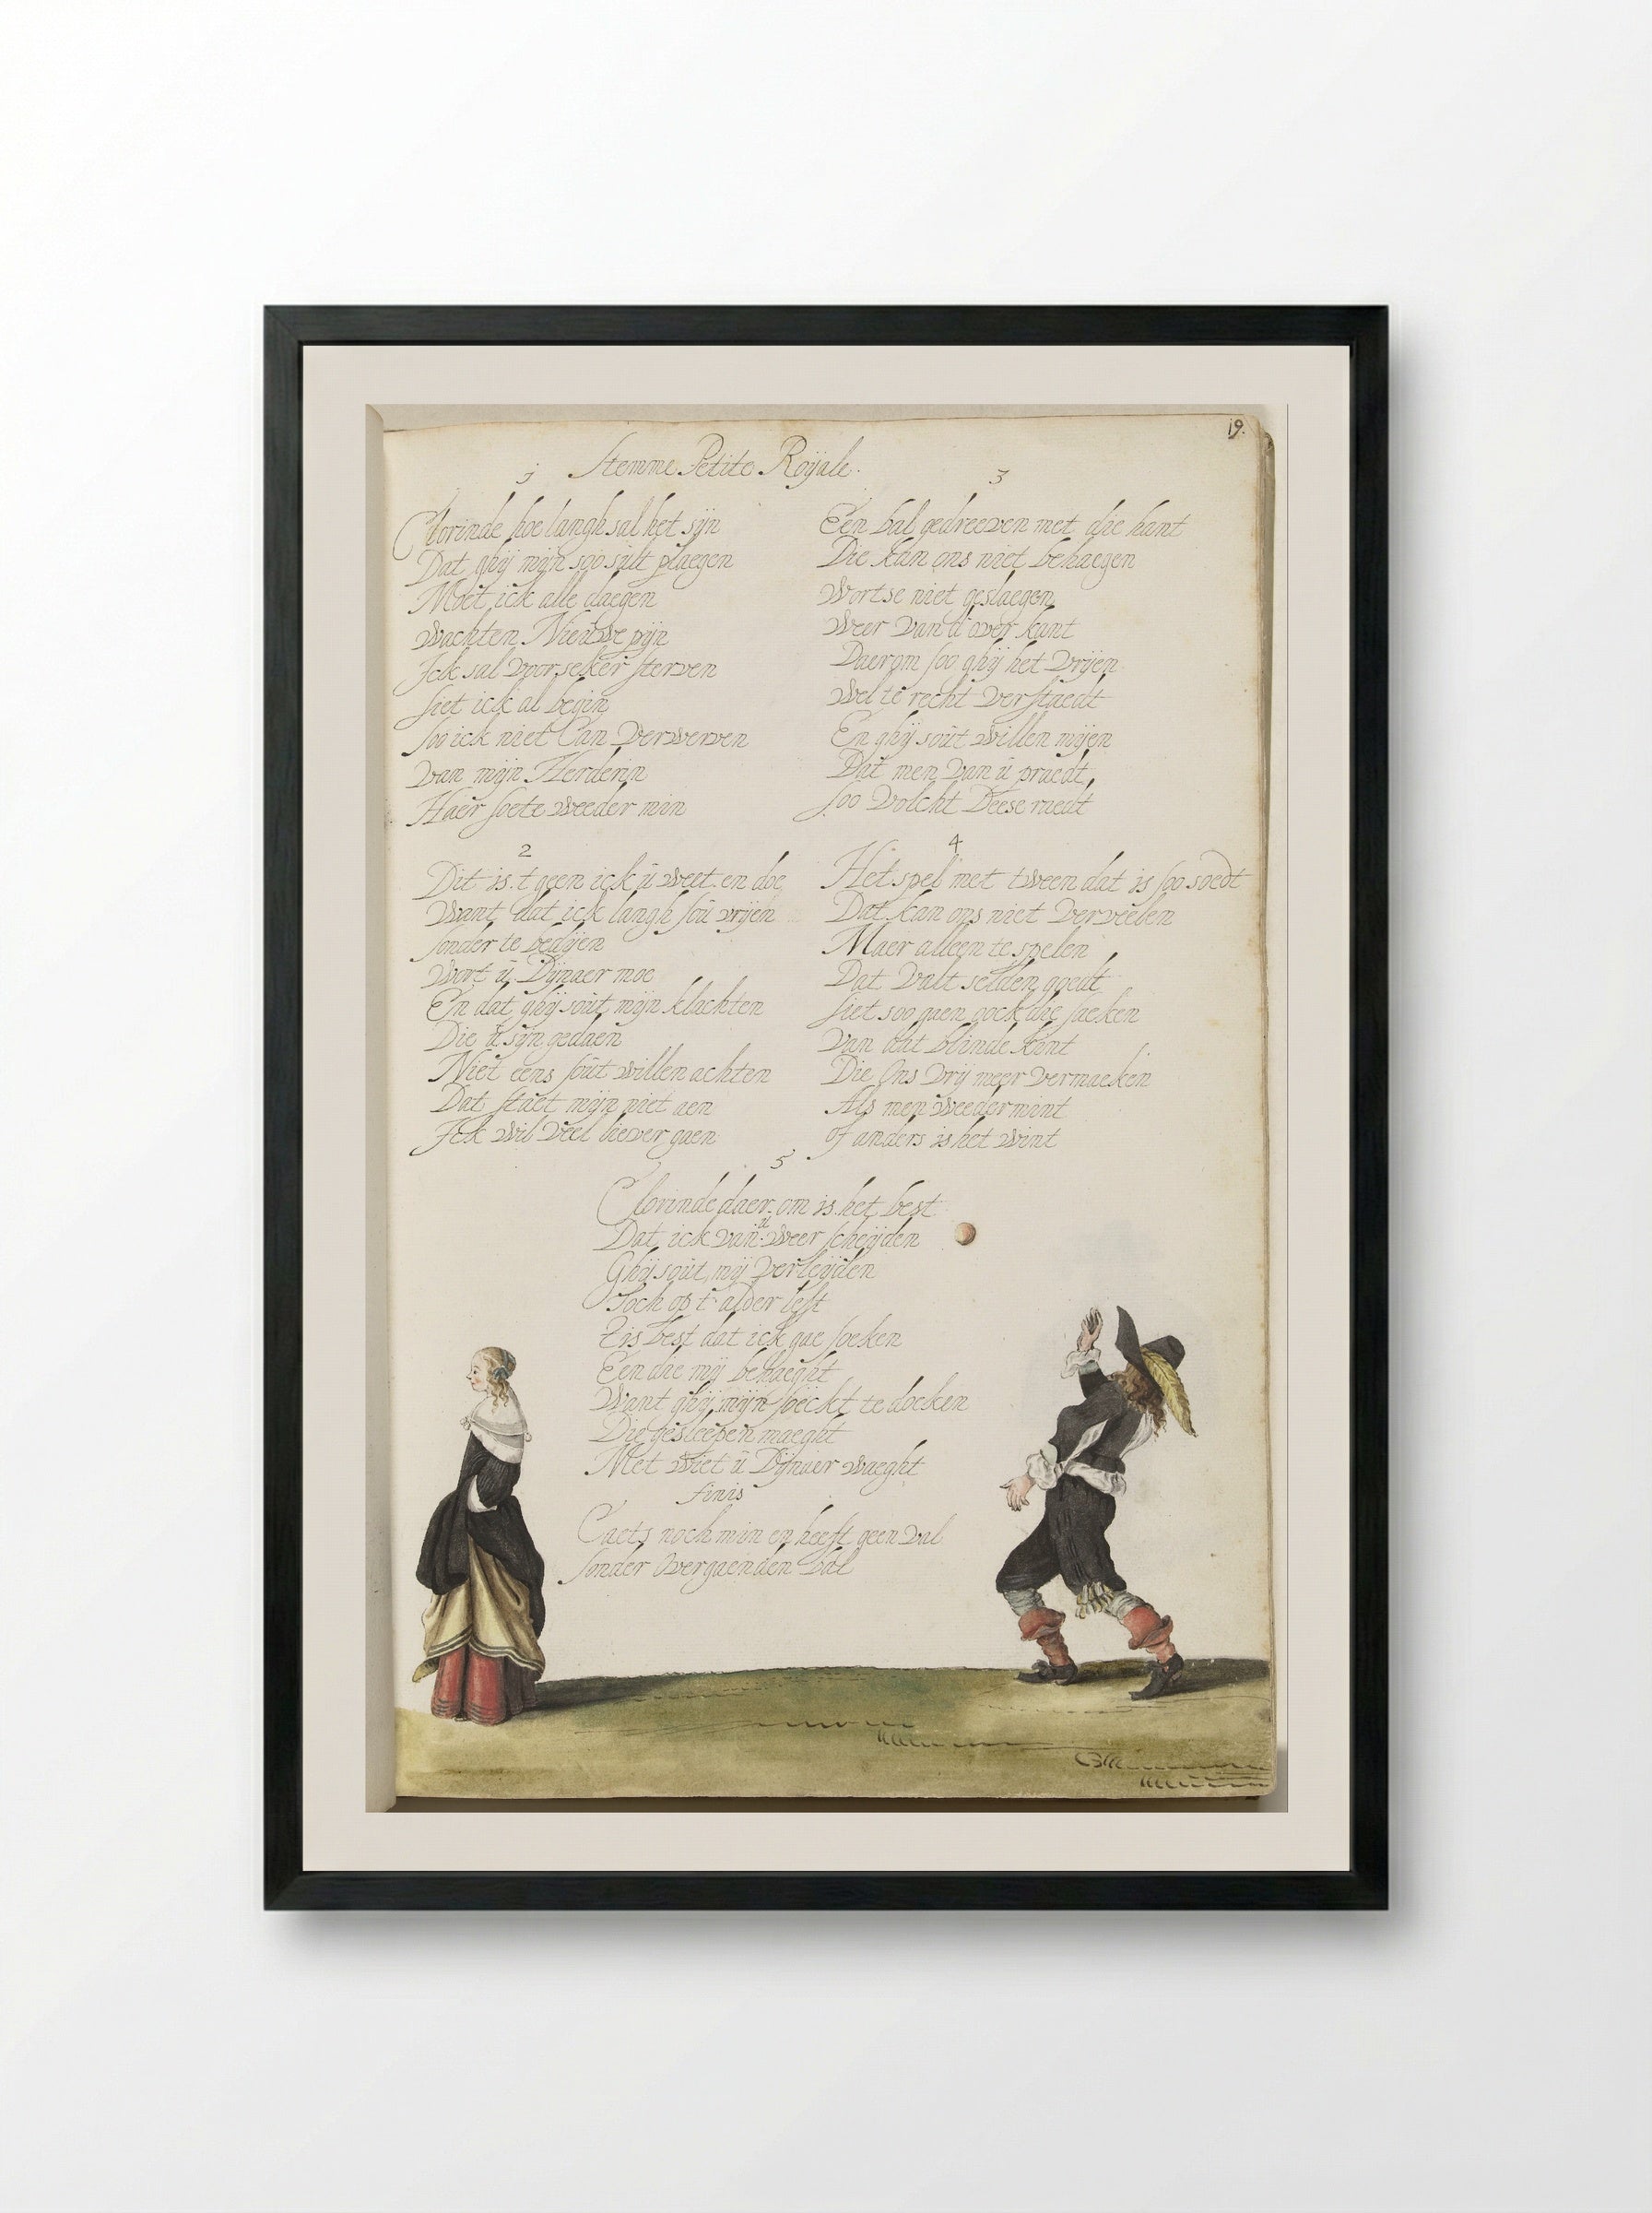 19.
Stemme Petite Royale.
1
Clorinde hoe langh sal het sijn
Dat ghij mijn soo sült plaegen
Moet ick alle daegen
Wachten Nieüwe pijn
Ick sal voorseker sterven
siet ick al begin
soo ick niet Can Verwerven
Van mijn Herderin
Haer soete weeder min
2
Dit is t geen ick ü weet en doe
Want dat ick langh soü vrijen
sonder te bedijen
Wort ü Dijnaer moe
En dat ghij soüt mijn klachten
Die ü sijn gedaen
Niet eens soüt willen achten
Dat staet mijn niet aen
Ick wil Veel liever gaen
3
Een bal gedreeven met die hant
Die kan ons niet behaegen
Wortse niet geslaegen
Weer van d'over kant
Daerom soo ghij het Vrijen
Wel te recht Verstaedt
En ghij soüt willen mijen
Dat men Van ü praedt,
soo Volcht Deese raedt
4
Het spel met tween dat is soo soedt
Dat kan ons niet Verveelen
Maer alleen te spelen
Dat Valt selden goedt
siet soo gaen oock die saeken
Van dat blinde kint
Die Ons Vrij meer Vermaeken
Als men weedermint
of anders is het wint
5
Clorinde daer om is het best
Dat ick van ü weer scheijden
Ghij soüt mij Verleijden
Toch op t alder lest
Tis best dat ick gae soeken
Een die mij behaeght
Want ghij mijn soeckt te doeken
Die gesleepen maeght
Met Wiet ü Dijnaer waeght
finis
Caets noch min en heeft geen Val
sonder Overgaenden bal